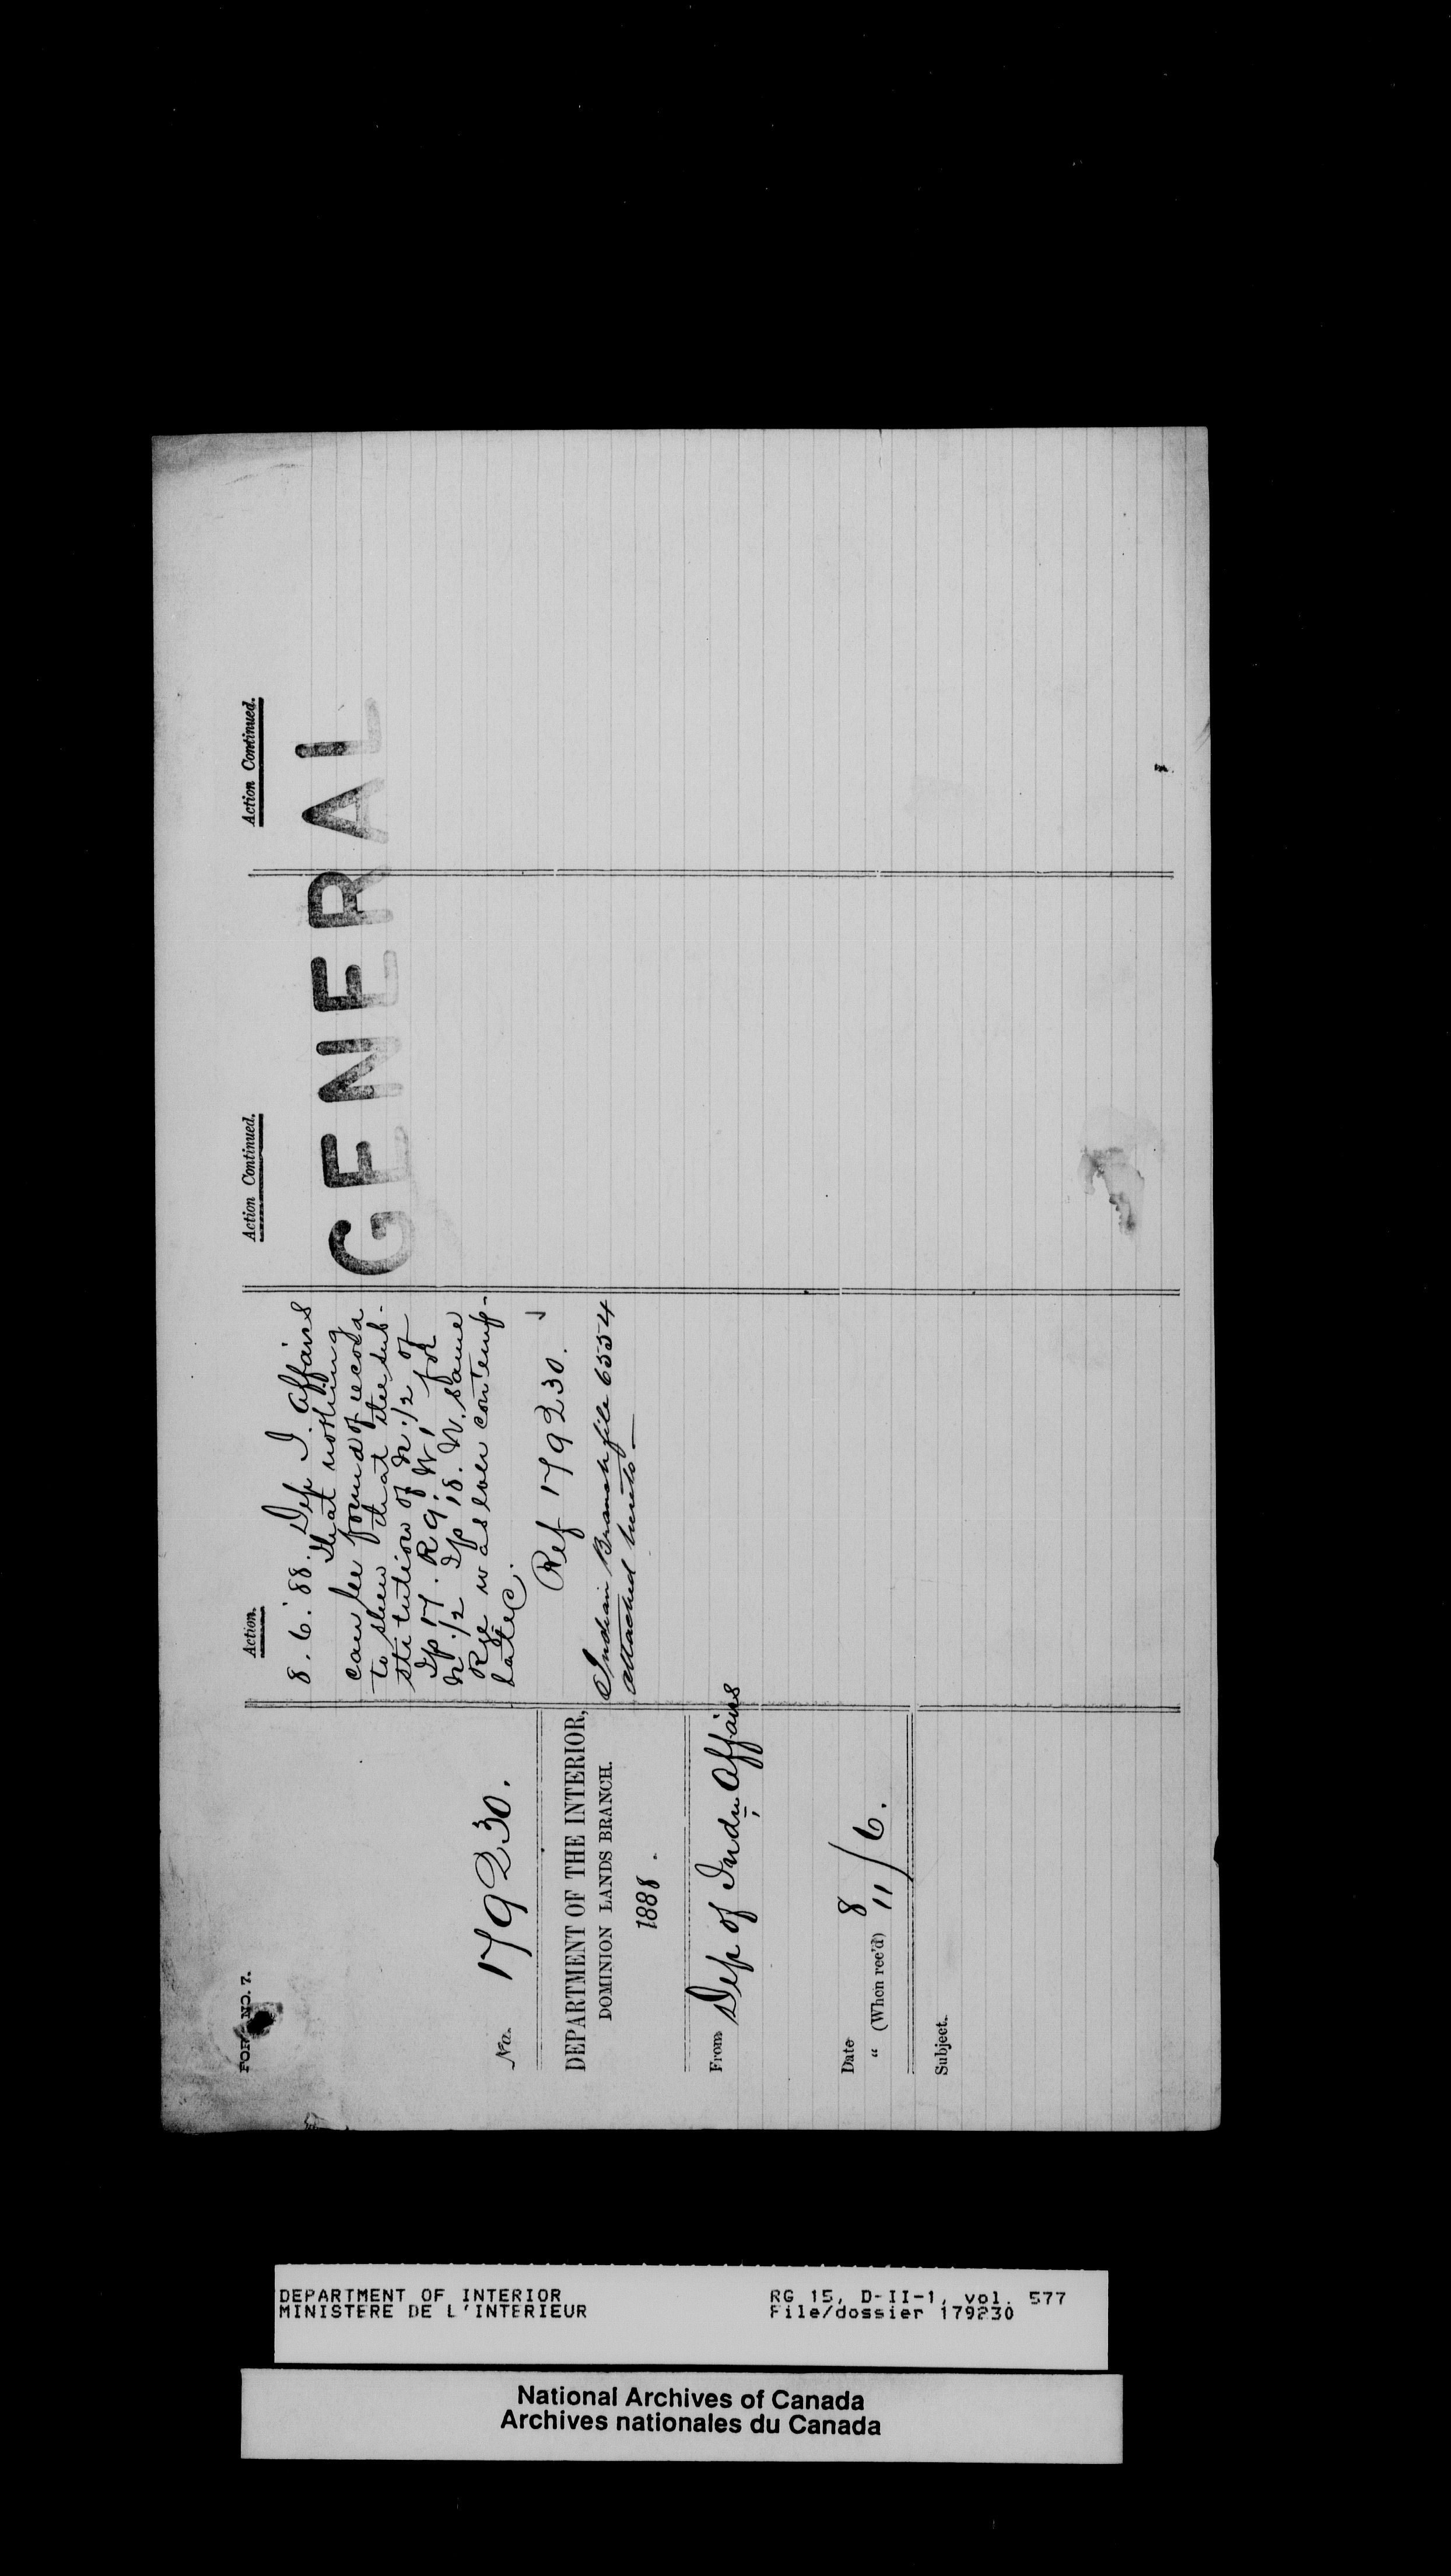 FORM NO. 7.
No. 179230.
DEPARTMENT OF THE INTERIOR,
DOMINION LANDS BRANCH.
1888.
From Dep of Indn Affairs
Date 8
" (When rec'd) 11/6.
Subject.
Action.
8.6.'88. Dep I. Affairs
that nothing
can be found of record
to shew that the sub-
stitution of N.1/2 of
Tp 17. R 9. W, for
N.1/2 Tp 18. W. same
Rge was ever contemp-
lated.
Ref 179230.
Indian Branch file 6554
attached hereto—
Action Continued.
GENERAL
Action Continued.
DEPARTMENT OF INTERIOR
MINISTERE DE L'INTERIEUR
RG 15, D-II-1, vol. 577
File/dossier 179230
National Archives of Canada
Archives nationales du Canada